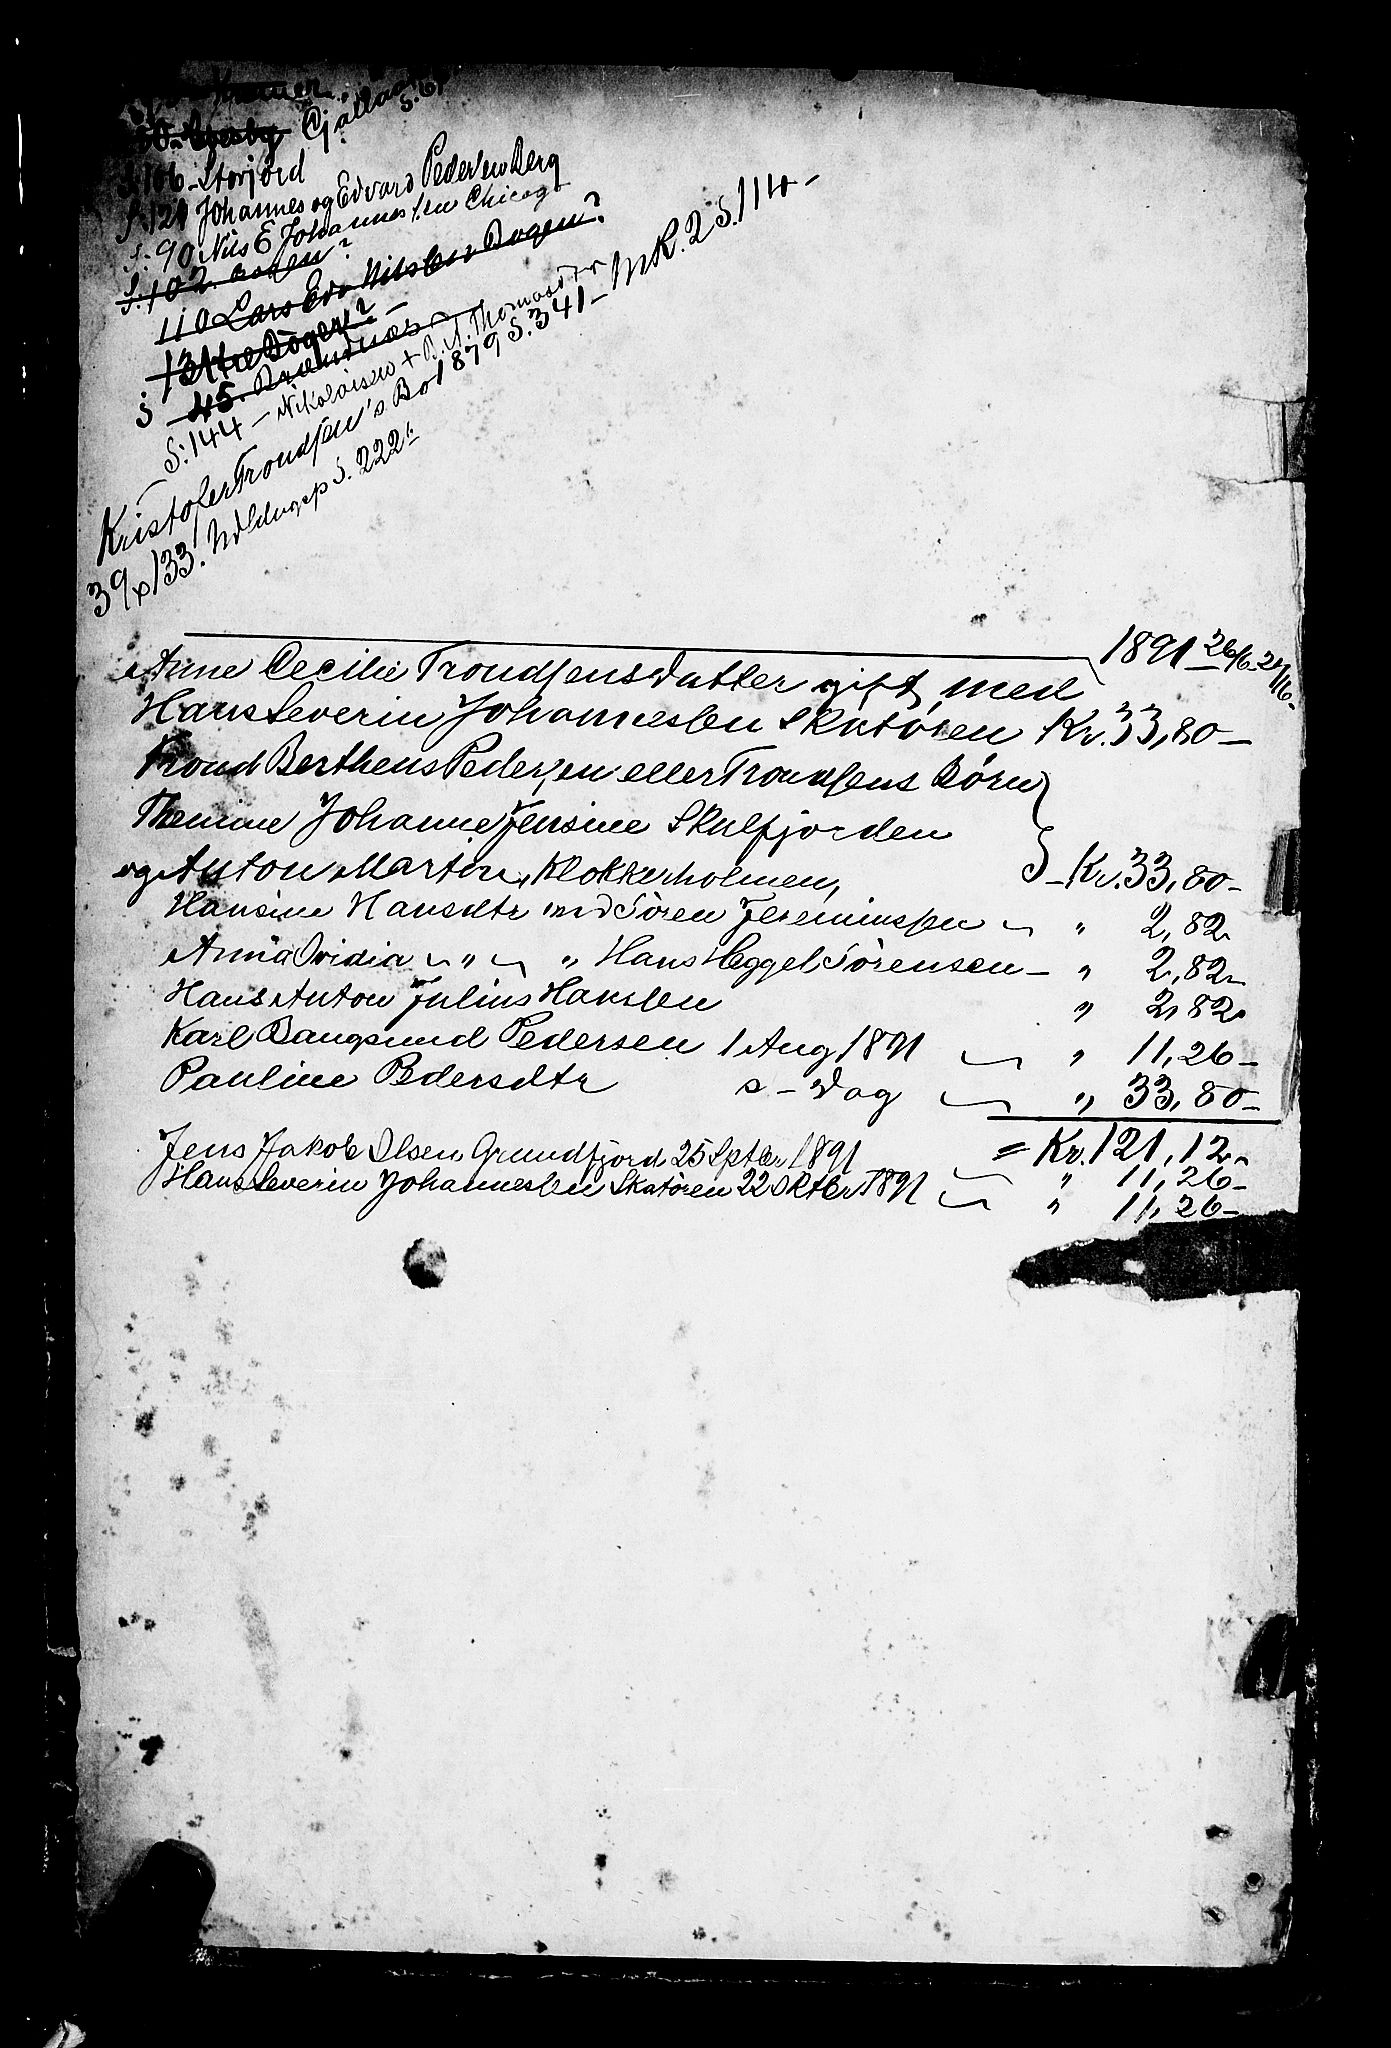 S. 106 - Storjord
S. 121 Johannes og Edvard Pedersen Berg
S. 90 Nils E Johannessen Chicago
S. 102. Bogen?
110 Lars Edv. Nilsen Bogen?
Bogen?
S 45.
S. 144 - Nikolaisen + B. A. Thomasdtr
Kristofer Trondsen's Bo 1879 S. 341 - MK. 2 S. 114 -
39 x 133. S. 222
1891 26/6
Anne Cecilie Trondsensdatter gift med
Hans Severin Johannessen Skatören Kr. 33,80 -
Trond Berthens Pedersen eller Trondsens Börn
Johanne Jensine Skulfjorden
og Anton Martin, Klokkerholmen, S - Kr. 33,80 -
Hansine Hansdtr md Sören Jeremiassen „ 2,82
Anna Ovidia „ „ Hans Heggel Sörensen - „ 2,82
Hans Anton Julius Hansen „ 2,82
Karl Bangsund Pedersen 1 Aug 1891 „ 11,26 -
Pauline Pedersdtr s - Dag „ 33,80 -
= Kr. 121,12
Jens Jakob Olsen Grundfjord 25 Septbr 1891 „ 11,26 -
Hans Severin Johannessen Skatören 22 Oktbr 1891 „ 11,26 -